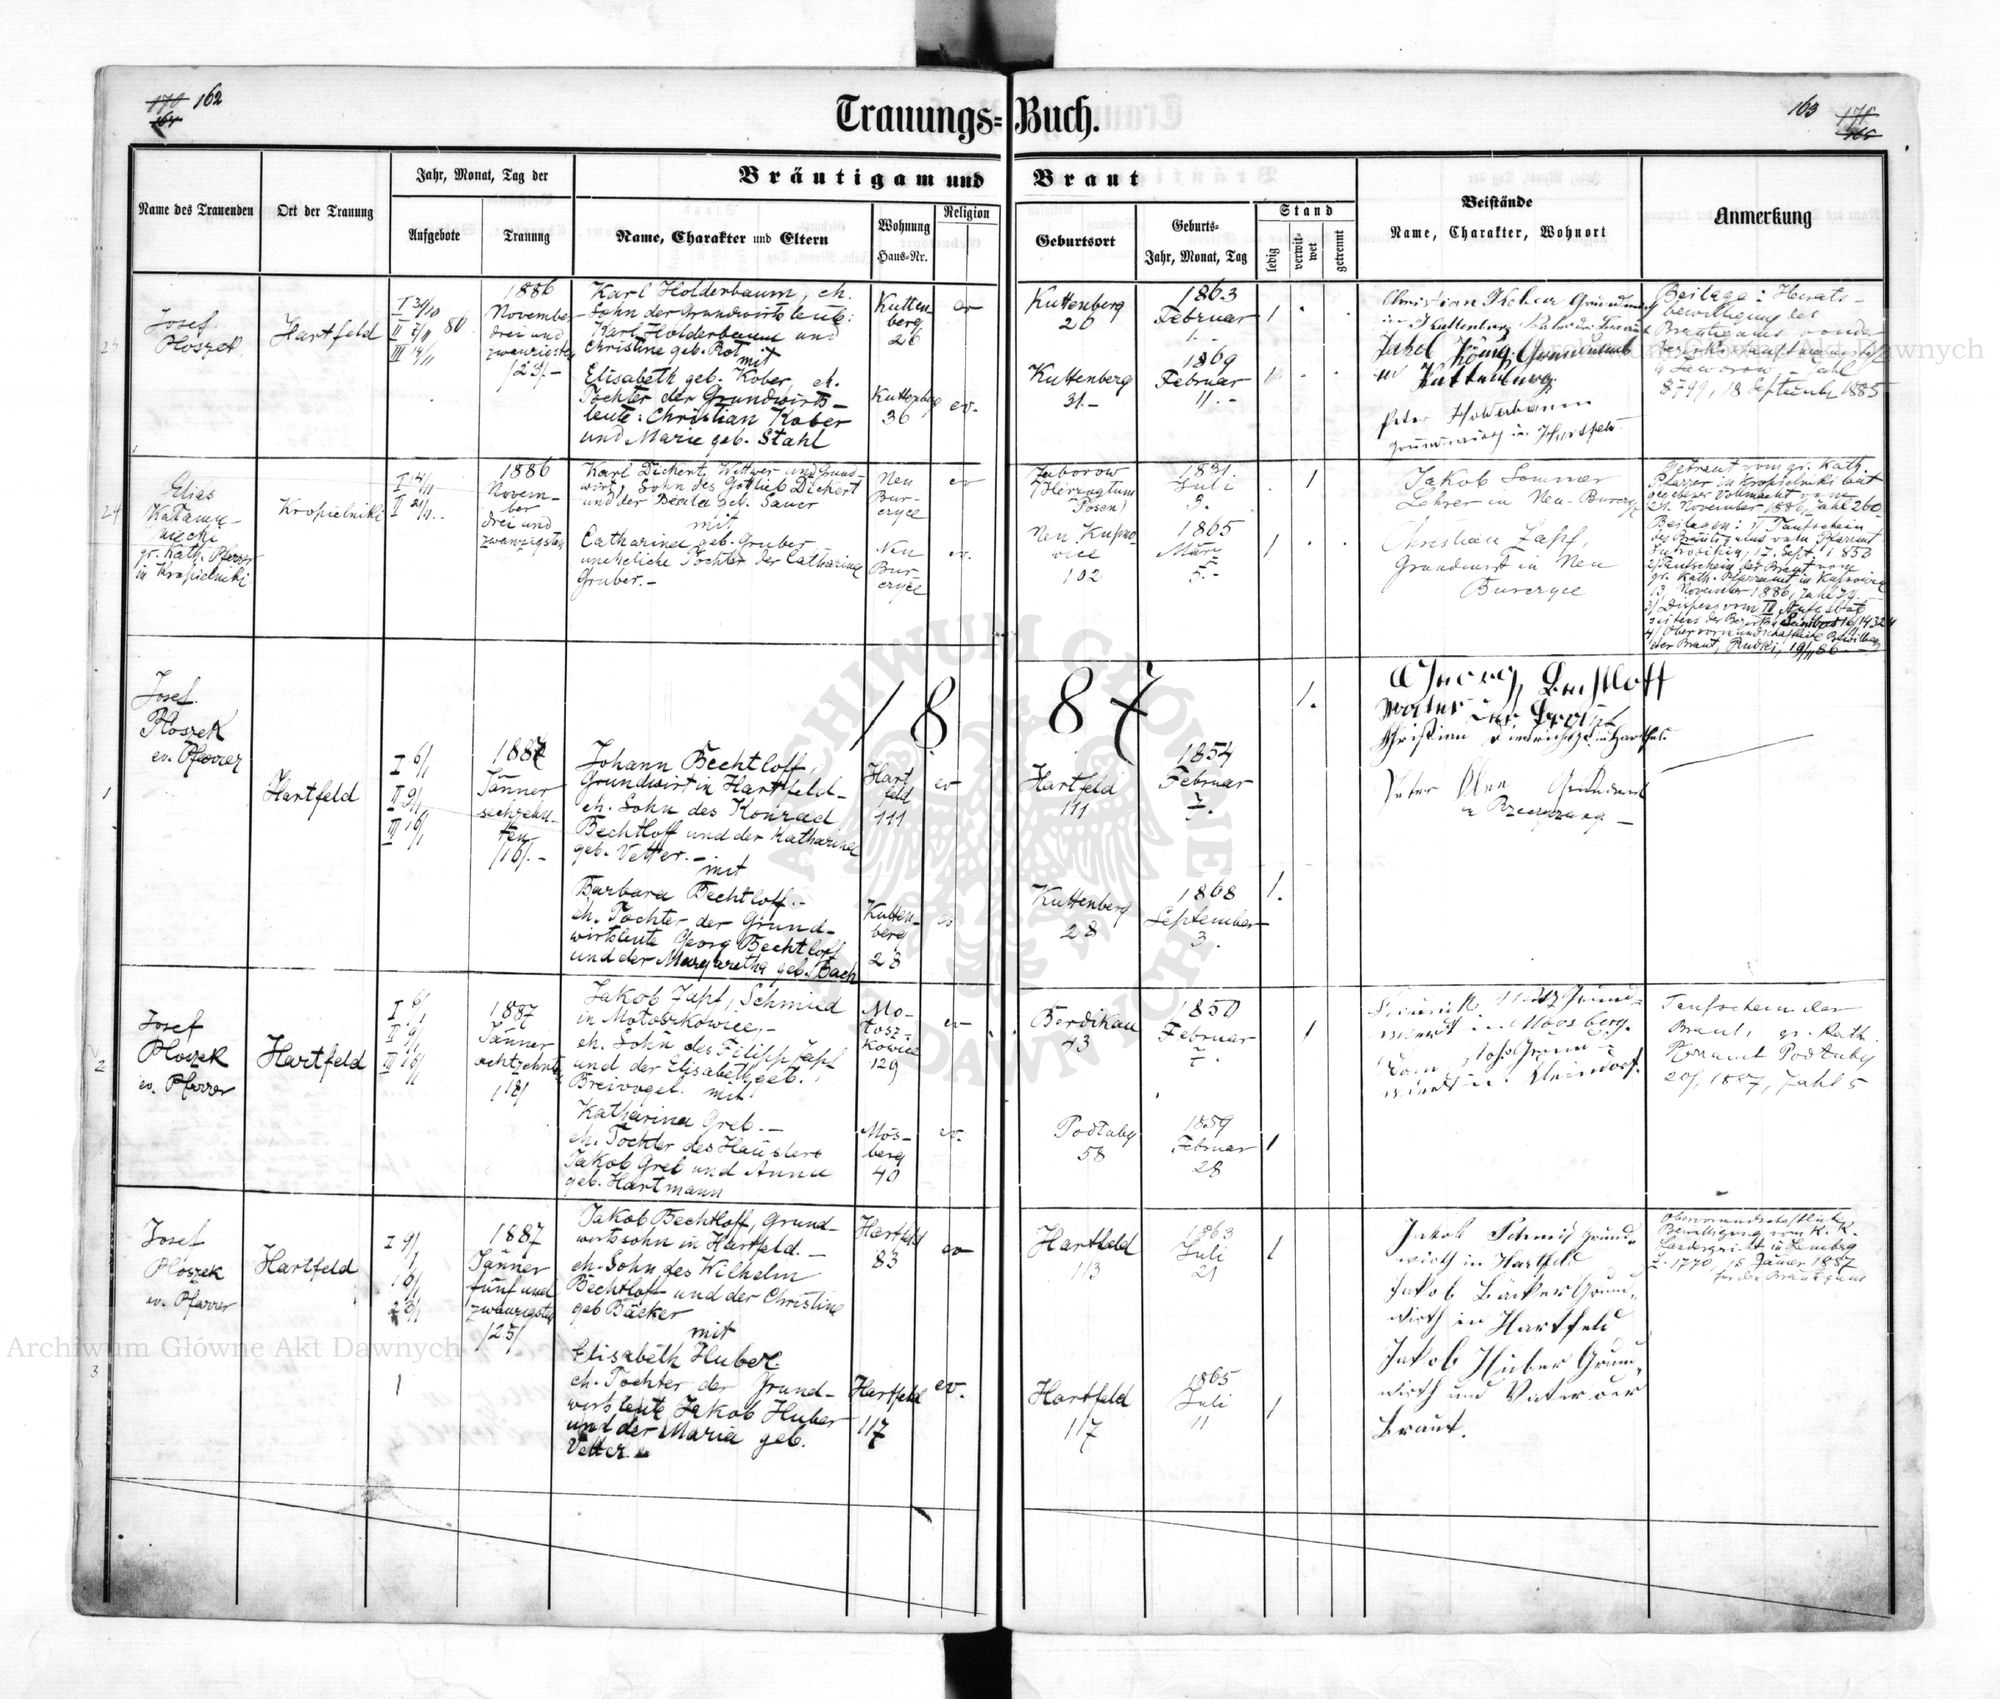 170 162
164
Trauungs=Buch.
163 171
165
Name des Trauenden
Ort der Trauung
Jahr, Monat, Tag der
Aufgebote
Trauung
Bräutigam und Braut
Name, Charakter und Eltern
Wohnung
Haus-Nr.
Religion
Geburtsort
Geburts-
Jahr, Monat, Tag
Stand
ledig
verwit-
wet
getrennt
Beistände
Name, Charakter, Wohnort
Anmerkung
23
Josef
Ploszek
Hartfeld
I 31/10
II 7/11
III 14/11
1886
November
drei und
zwanzigsten
/23/-
Karl Holderbaum, eh.
Sohn der Grundwirtsleute:
Karl Holderbaum und
Christine geb. Rot
mit
Elisabeth geb. Kober, eh.
Tochter der Grundwirts-
leute: Christian Kober
und Marie geb. Stahl
Kutten
berg
26
ev
Kuttenberg
36
ev.
Kuttenberg
26
1863
Februar
1.-
1
Kuttenberg
31.-
1869
Februar
11.-
Jakob König, Grundwirth
in Kuttenberg
Peter Holderbaum
Beilage: Heirats-
bewilligung des
Bräutigams von der
8799, 18 September 1885
24
Elias
gr. Kath. Pfarrer
in Kropielniki
Kropielniki
I 14/11
II 21/11.-
1886
Novem-
ber
drei und
zwanzigsten
Karl Dichert, Wittwer und Grund-
wirt, Sohn des Gottlieb Dichert
und der Beata geb. Sauer
mit
Catharina geb. Gruber
uneheliche Tochter der Catharina
Gruber.-
Neu
Bur-
czyce
ev
Neu
Bur-
czyce
ev.
Jaborow
/Herzogtum
Posen/
1831.
Juli
3.
1
Neu Kupno-
wice
102
1865
März
5.-
1
Jakob Sommer
Lehrer in Neu-Burczyce
Christian Zapf,
Grundwirt in Neu
Burczyce
Getraut vom gr. Kath.
Pfarrer in Kropielniki laut
gegebener Vollmacht vom
21. November 1886, Zahl 260
Beilagen: 1/ Taufschein
des Bräutigams vom Pfarramt
17. Sept. 1853
2/ Taufschein der Braut vom
gr. Kath. Pfarramt in Kupnowice
13. November 1886, Zahl 74
3/ Dispens vom III Aufgebot
der Braut, Rudki, 19/11 86
1887
1
Josef
Ploszek
ev. Pfarrer
Hartfeld
I 6/1
II 9/1
III 16/1
1887
Jänner
sechzehn-
ten
/16/.-
Johann Bechtloff,
Grundwirt in Hartfeld-
eh. Sohn des Konrad
Bechtloff und der Katharina
geb. Vetter.-
mit
Barbara Bechtloff.-
eh. Tochter der Grund-
wirtsleute Georg Bechtloff
und der Margaretha geb. Bach
Hart
feld
111
ev
Kutten-
berg
28
ev
Hartfeld
111
1854
Februar
7.
1.
Kuttenberg
28
1868
September
3.
1.
Georg Bechtloff
Vater der Braut
Peter
2
Josef
Ploszek
ev. Pfarrer
Hartfeld
I 6/1
II 9/1
III 16/1
1887
Jänner
achtzehnten
/18/
Jakob Zapf, Schmied
in Motoszkowice,-
eh. Sohn des Filipp Zapf
und der Elisabeth geb.
Breivogel. mit
Katharina Greb.-
eh. Tochter des Häuslers
Jakob Greb und Anna
geb. Hartmann
Mo-
tosz-
kowice
129
ev
Mos-
berg
40
ev.
Berdikau
43
1850
Februar
7.
1
Podtuby
58
1859
Februar
28
1
Grund-
wirt in Moosberg.
Taufschein der
Braut, gr. Kath.
Pfarramt Podtuby
20/1 1887, Zahl 5
3
Josef
Ploszek
ev. Pfarrer
Hartfeld
I 9/1
16/1
23/1
1887
Jänner
fünf und
zwanzigsten
/25/
Jakob Bechtloff, Grund-
wirtssohn in Hartfeld.-
eh. Sohn des Wilhelm
Bechtloff und der Christine
geb Bäcker
mit
Elisabeth Huber.
eh. Tochter der Grund-
wirtsleute Jakob Huber
und der Maria geb.
Vetter.-
Hartfeld
83
ev
Hartfeld
117
ev.
Hartfeld
113
1863
Juli
21
1
Hartfeld
117
1865
Juli
11
1
Jakob Schmid Grund-
wirth in Hartfeld
Jakob Bäcker Grund-
wirth in Hartfeld
Jakob Huber Grund-
wirth und Vater der
Braut.
Obervormundschaftliche
Bewilligung vom K. K.
Landesgericht in Lemberg
Z. 1770, 15 Jänner 1887
für den Bräutigam
ARCHIWUM GŁÓWNE AKT DAWNYCH
Archiwum Główne Akt Dawnych
Archiwum Główne Akt Dawnych